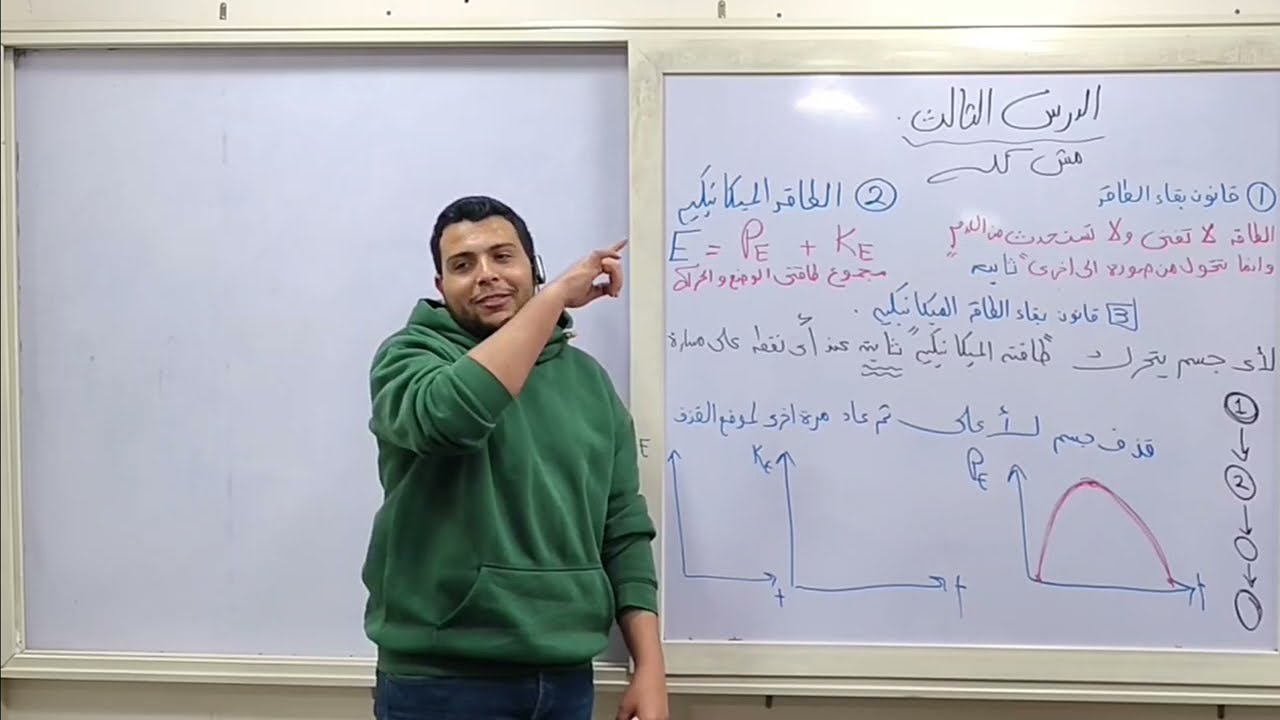 الدرس الثالث.
مش كله
① قانون بقاء الطاقة
الطاقه لا تفنى ولا تستحدث من العدم
وانما تتحول من صورة الى اخرى "ثابته"
② الطاقه الميكانيكيه
E = PE + KE
مجموع طاقتى الوضع والحركة
3 قانون بقاء الطاقه الميكانيكيه.
لأى جسم يتحرك "طاقته الميكانيكيه" ثابته عند أى نقطه على مساره
قذف جسم لأعلى ثم عاد مرة اخرى لموقع القذف
PE
t
KE
t
E
t
1
2